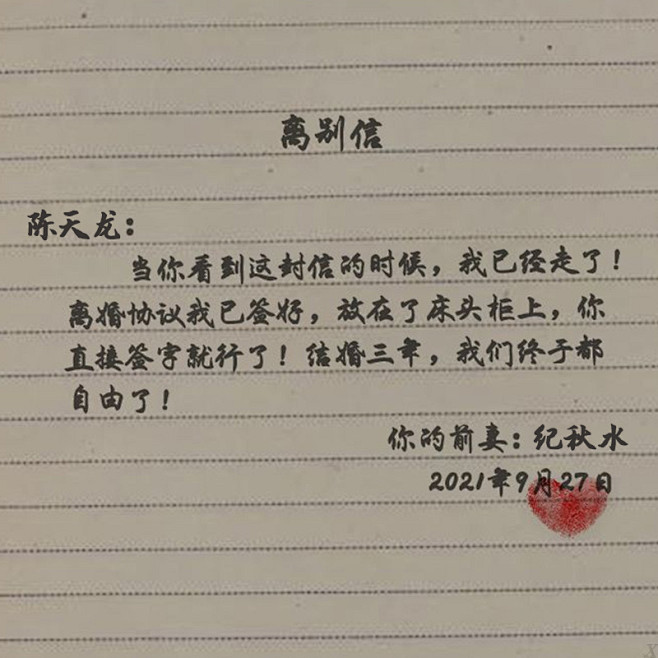 离别信
陈天龙：
当你看到这封信的时候，我已经走了！
离婚协议我已签好，放在了床头柜上，你
直接签字就行了！结婚三年，我们终于都
自由了！
你的前妻：纪秋水
2021年9月27日